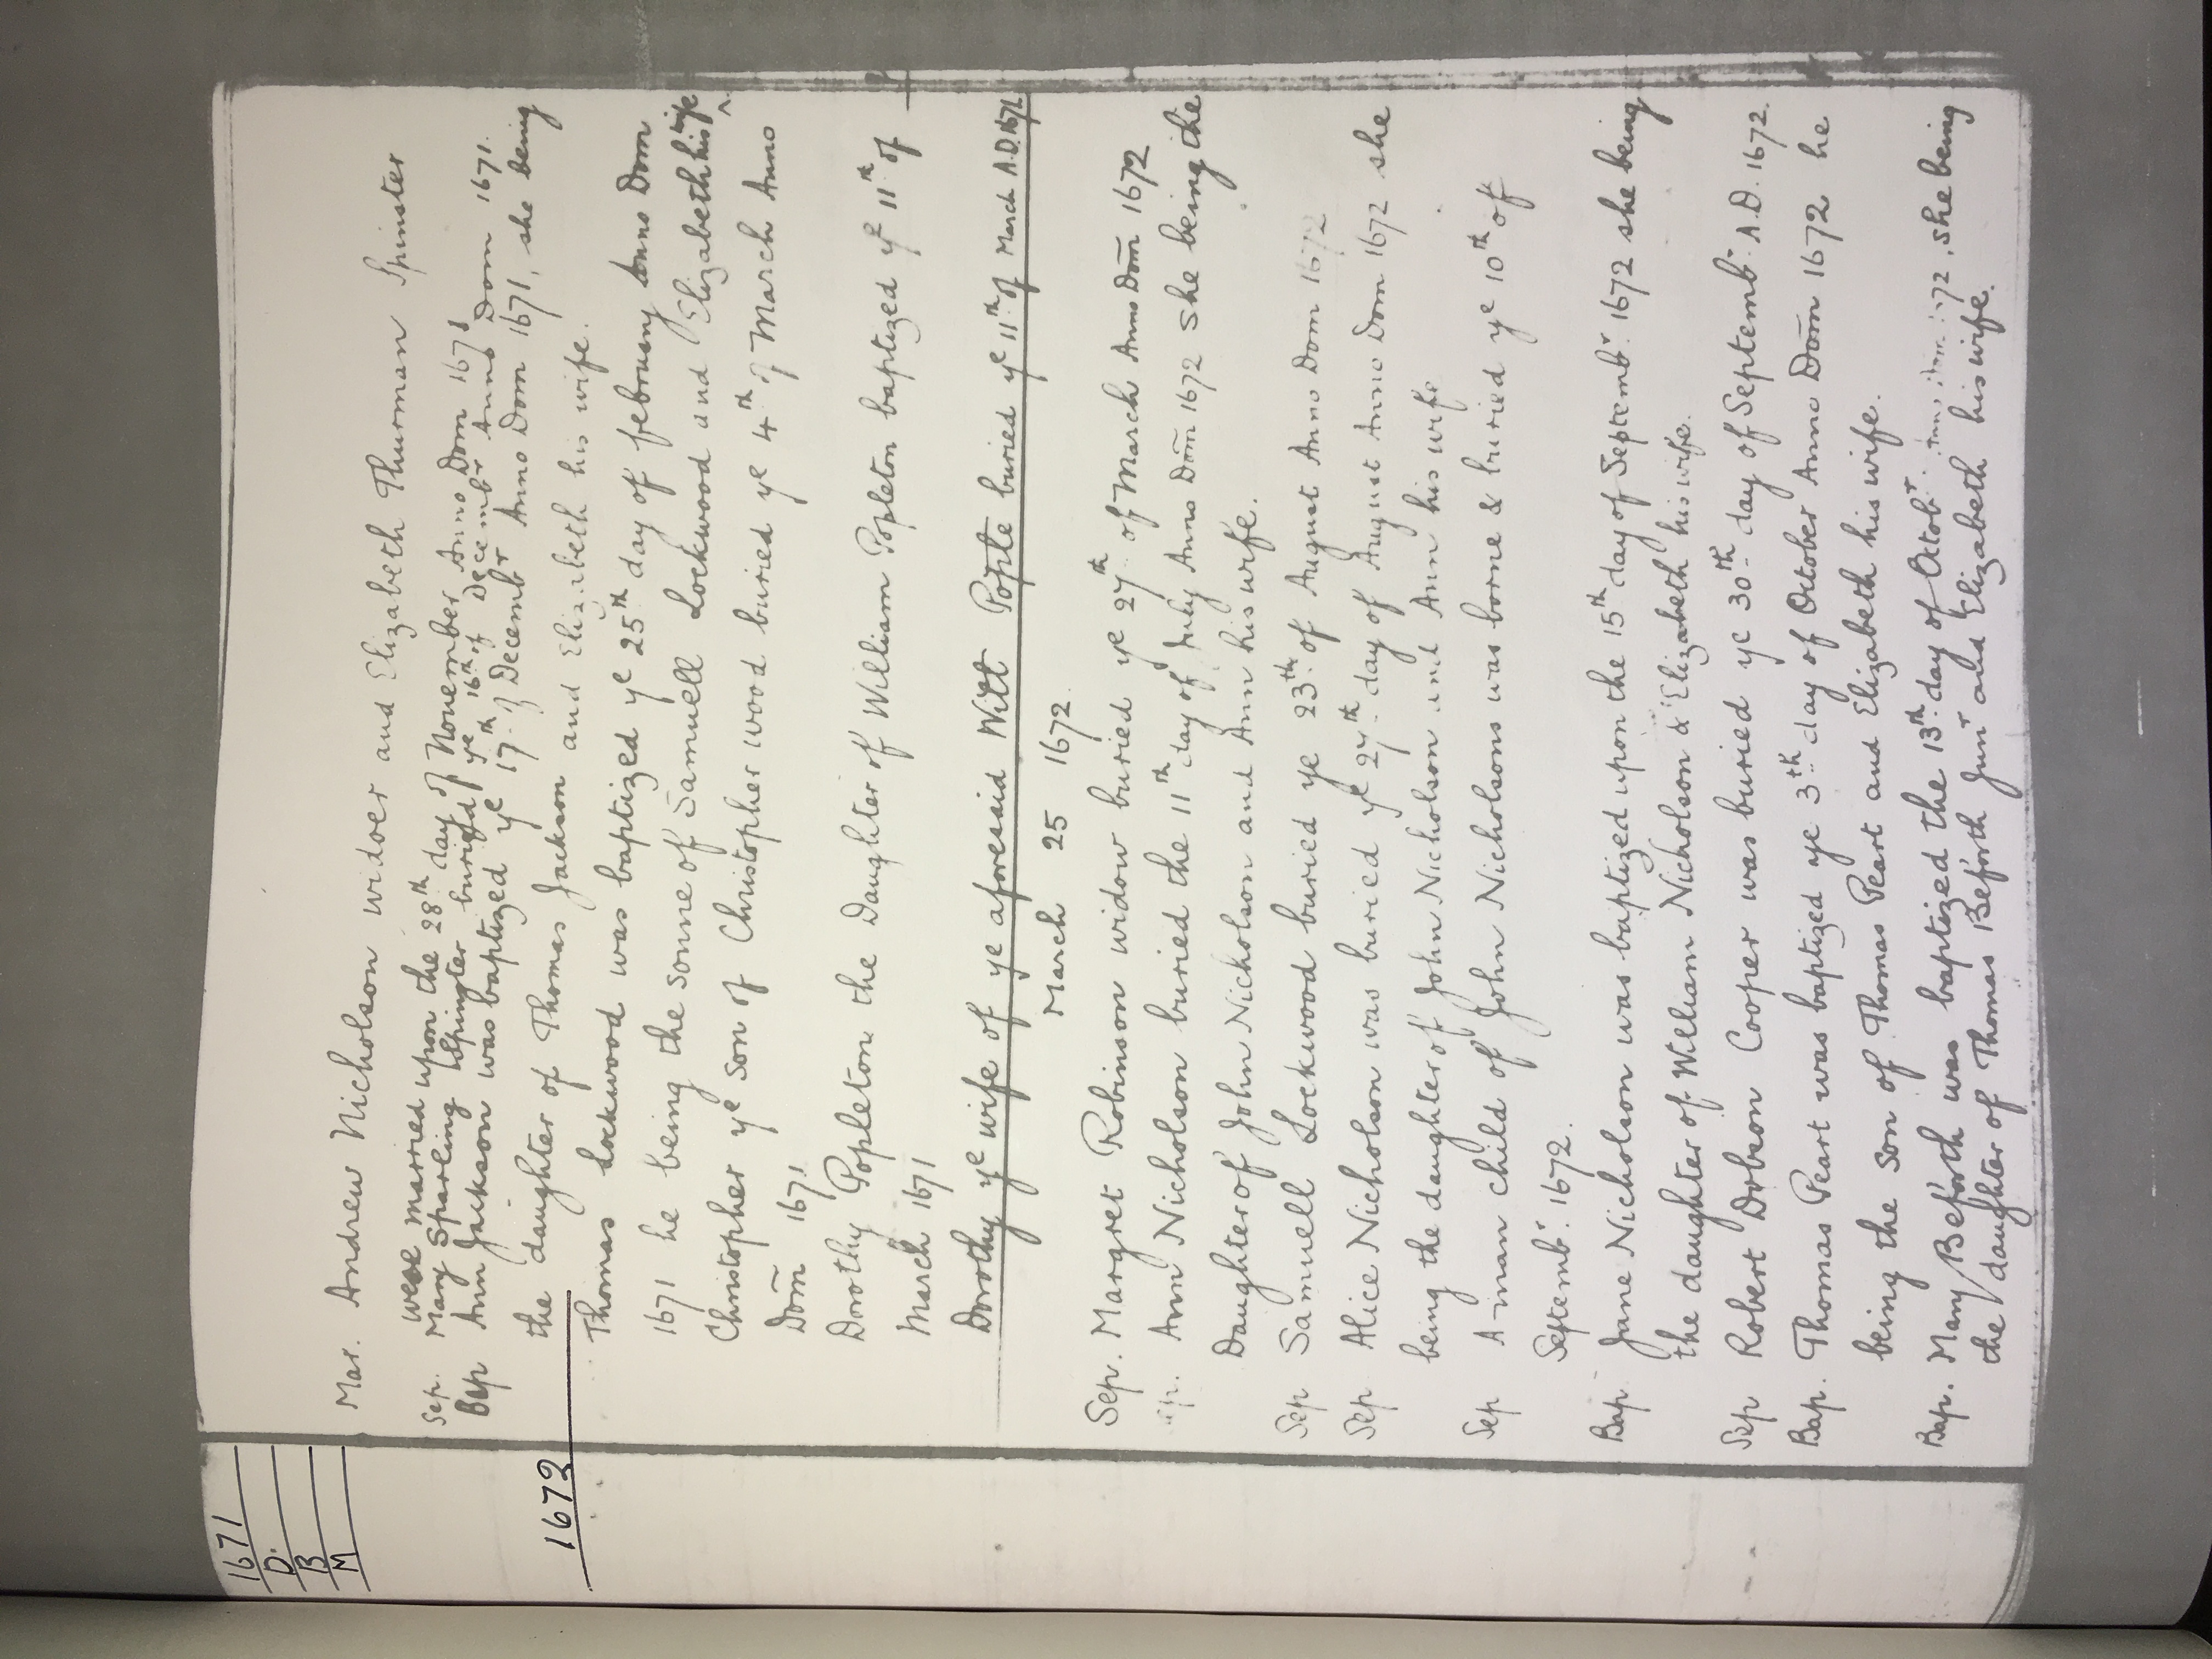 1671
D.
B
M
1672
Mar. Andrew Nicholson widoer and Elizabeth Thurman Spinster
were married upon the 28th day of Nouember Anno Dom 1671
Sep. Mary Sparling Spinster buried ye 16th of Decembr Anno Dom 1671.
Bap Ann Jackson was baptized ye 17th of Decembr Anno Dom 1671, she being
the daughter of Thomas Jackson and Elizabeth his wife.
Thomas Lockwood was baptized ye 25th day of february Anno Dom
1671 he being the sonne of Samuell Lockwood and Elizabeth his wife
Christopher ye son of Christopher wood buried ye 4th of March Anno
Dom̄ 1671
Dorothy Popleton the Daughter of William Popleton baptized ye 11th of
March 1671
Dorothy ye wife of ye aforesaid Witt Pople buried ye 11th of March A.D. 1671
March 25 1672.
Sep. Margret Robinson widow buried ye 27th of March Anno Dom̄ 1672
Ann Nicholson buried the 11th day of July Anno Dom̄ 1672 she being the
Daughter of John Nicholson and Ann his wife.
Sep Samuell Lockwood buried ye 23th of August Anno Dom 1672
Sep Alice Nicholson was buried ye 27th day of August Anno Dom 1672 she
being the daughter of John Nicholson and Ann his wife
Sep A-man child of John Nicholsons was borne & buried ye 10th of
Septembr. 1672.
Bap Jane Nicholson was baptized upon the 15th day of Septembr. 1672 she being
the daughter of William Nicholson & Elizabeth his wife.
Sep Robert Dobson Cooper was buried ye 30th day of Septembr. A.D. 1672.
Bap. Thomas Peart was baptized ye 3th day of October Anno Dom̄ 1672 he
being the son of Thomas Peart and Elizabeth his wife.
Bap. Mary Beforth was baptized the 13th day of Octobr 72. she being
the daughter of Thomas Beforth Junr and Elizabeth his wife.